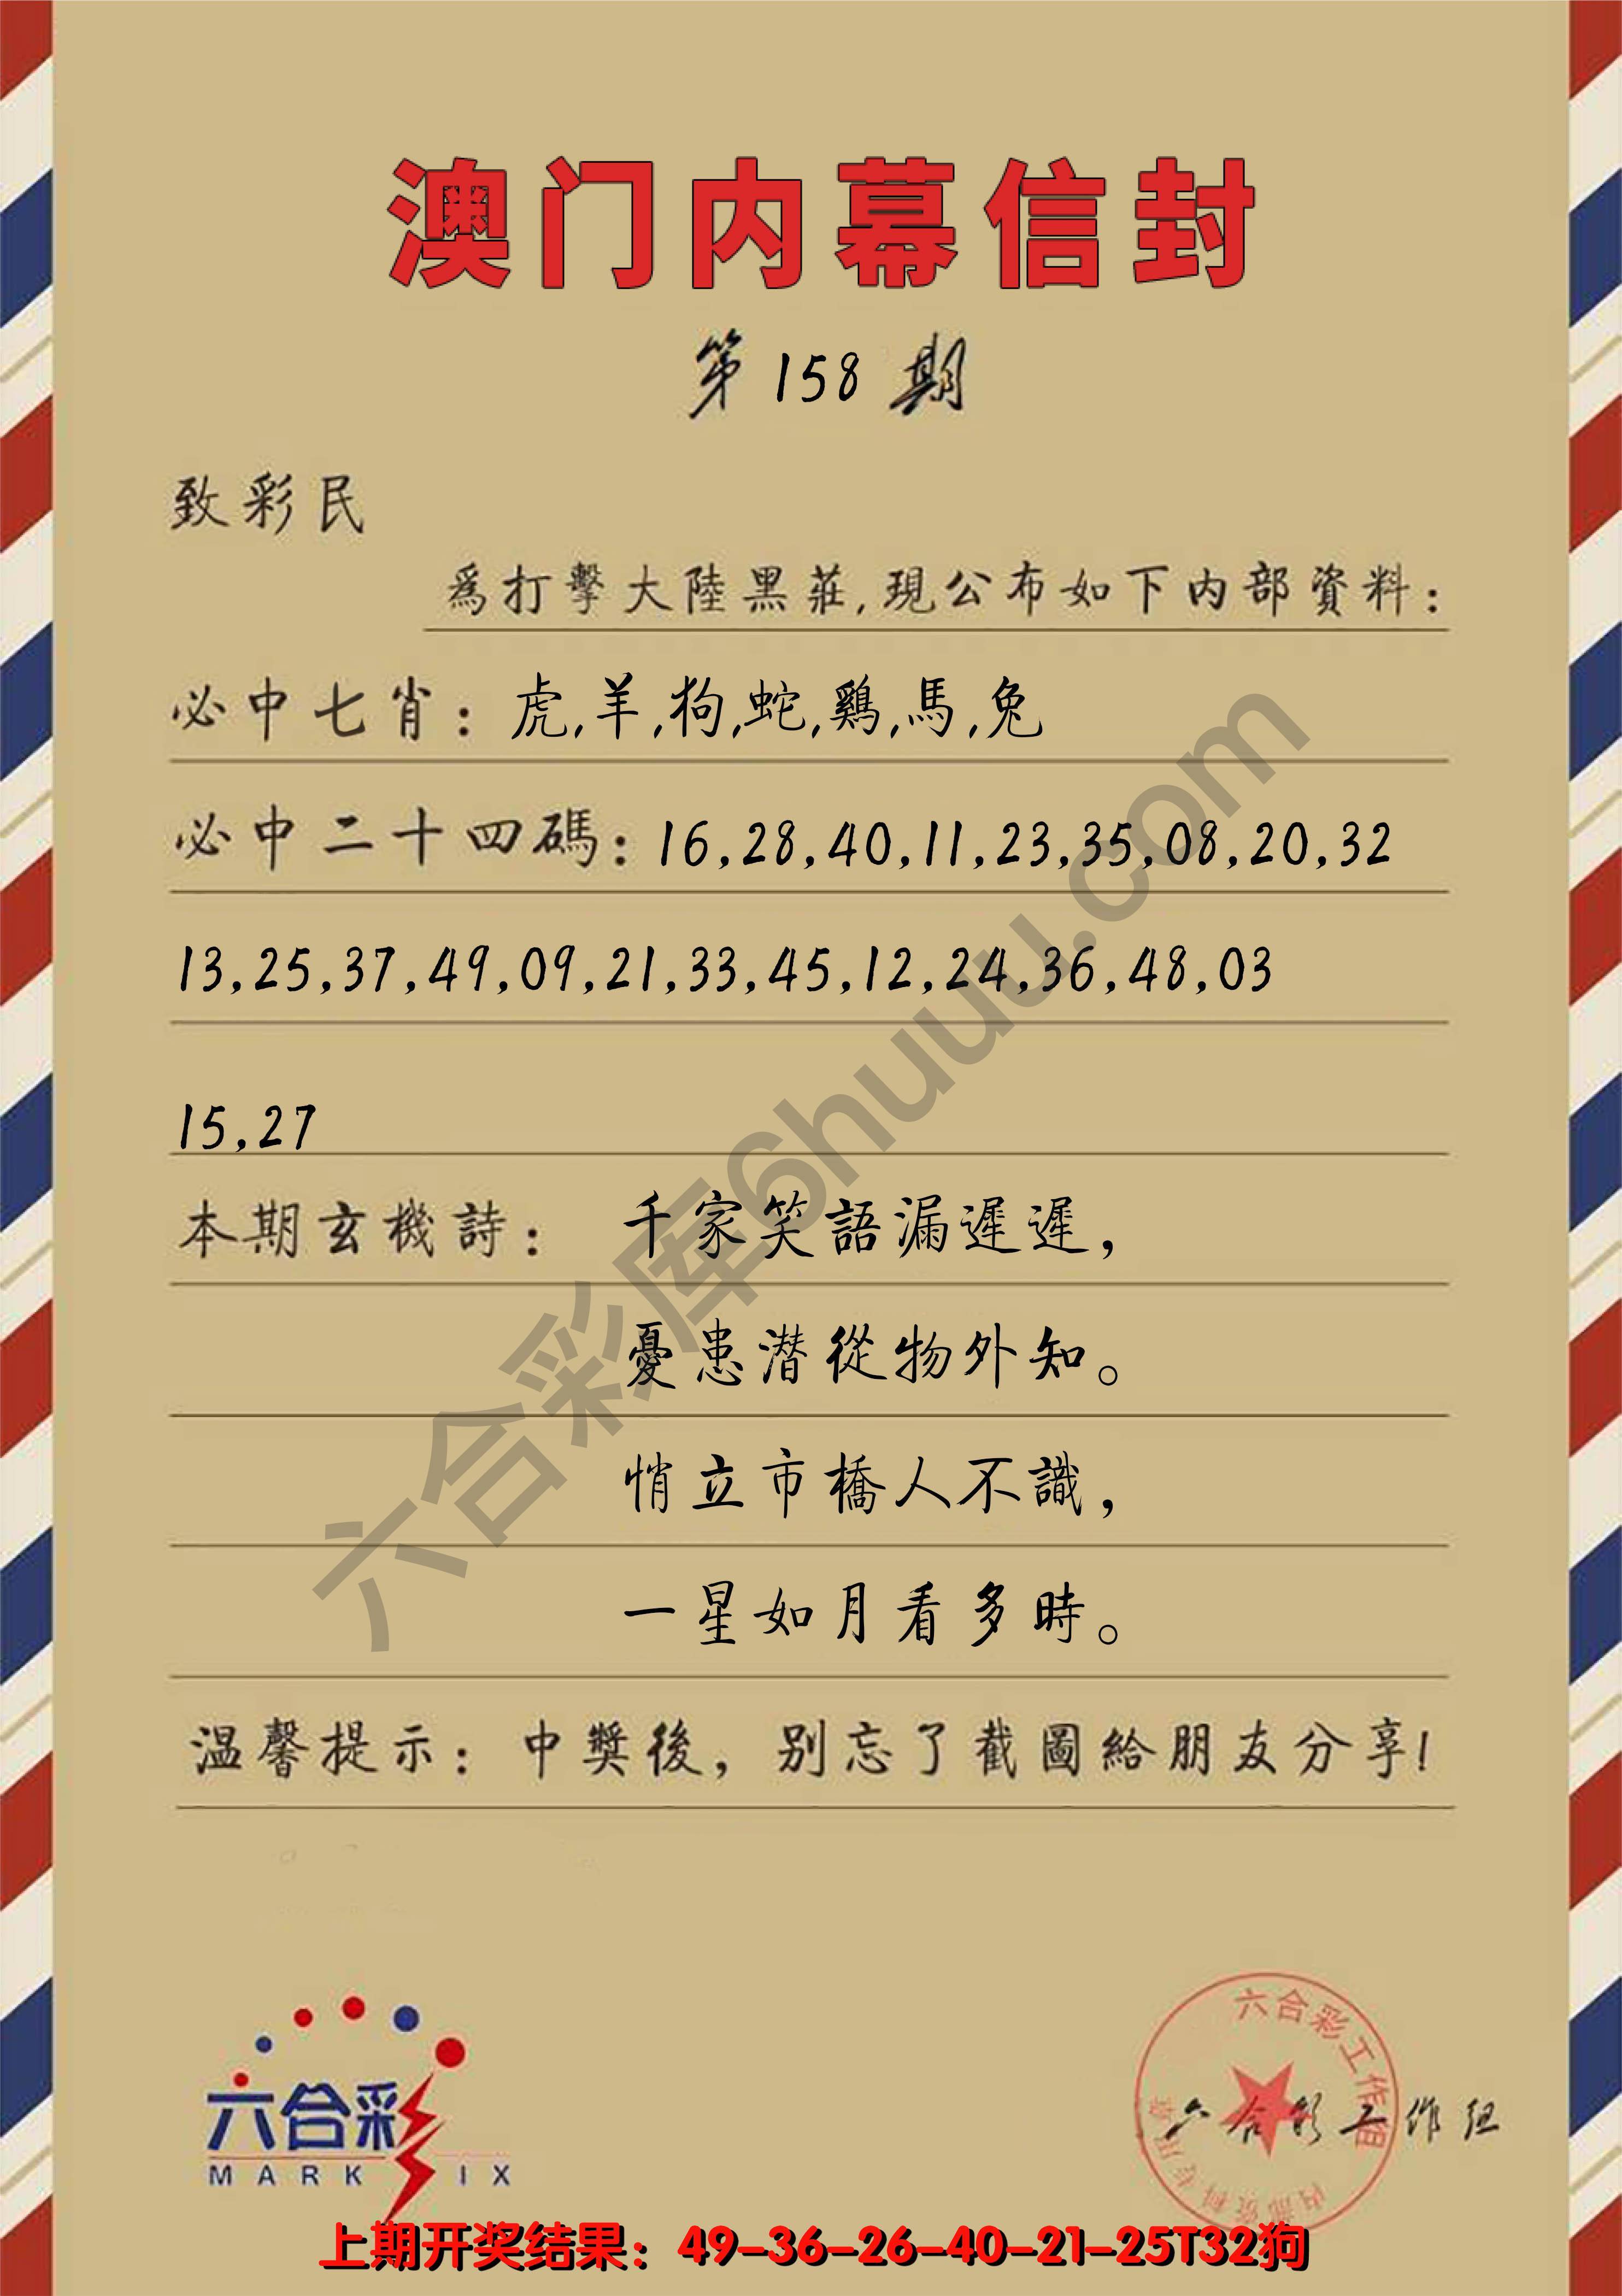 澳门内幕信封
第 158 期
致彩民
為打擊大陸黑莊,現公布如下内部資料:
必中七肖: 虎,羊,狗,蛇,鷄,馬,兔
必中二十四碼: 16,28,40,11,23,35,08,20,32
13,25,37,49,09,21,33,45,12,24,36,48,03
15,27
本期玄機詩: 千家笑語漏遲遲,
憂患潜從物外知。
悄立市橋人不識,
一星如月看多時。
温馨提示: 中獎後, 别忘了截圖給朋友分享!
六合彩库6huuu.com
六合彩
MARK IX
六合彩工作组
内部资料专用章
六合彩工作组
上期开奖结果: 49-36-26-40-21-25T32狗